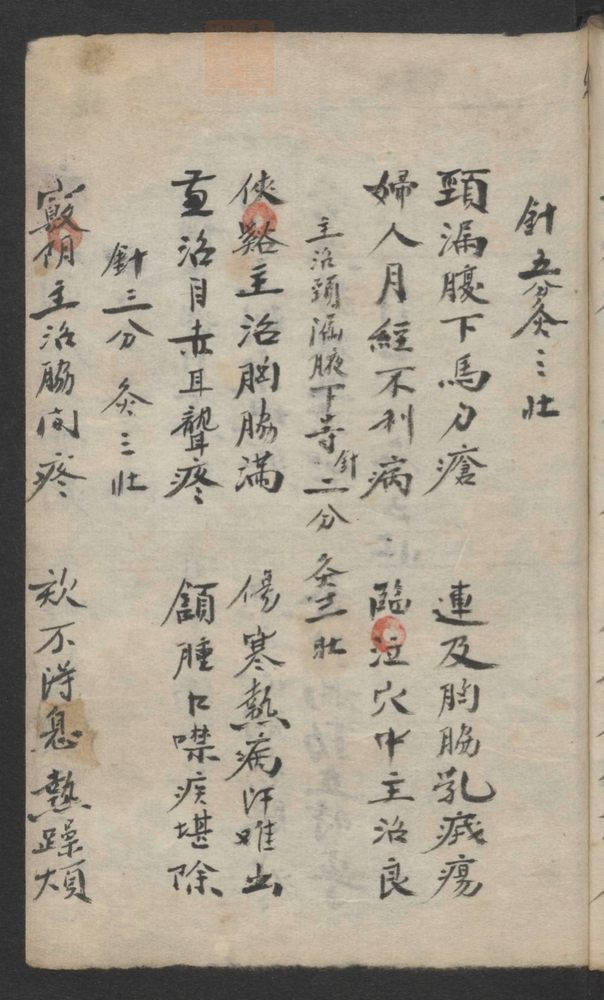 針五分灸三壮
頸漏腹下馬刀瘡 連及胸脇乳癰瘍
婦人月經不利病 臨泣穴中主治良
主治頸漏腋下等針二分灸三壮
俠谿主治胸脇滿 傷寒熱病汗难出
治目赤耳聾疼 頷腫口噤疾堪除
針三分 灸三壮
竅阴主治脇间疼 欬不得息熱躁煩